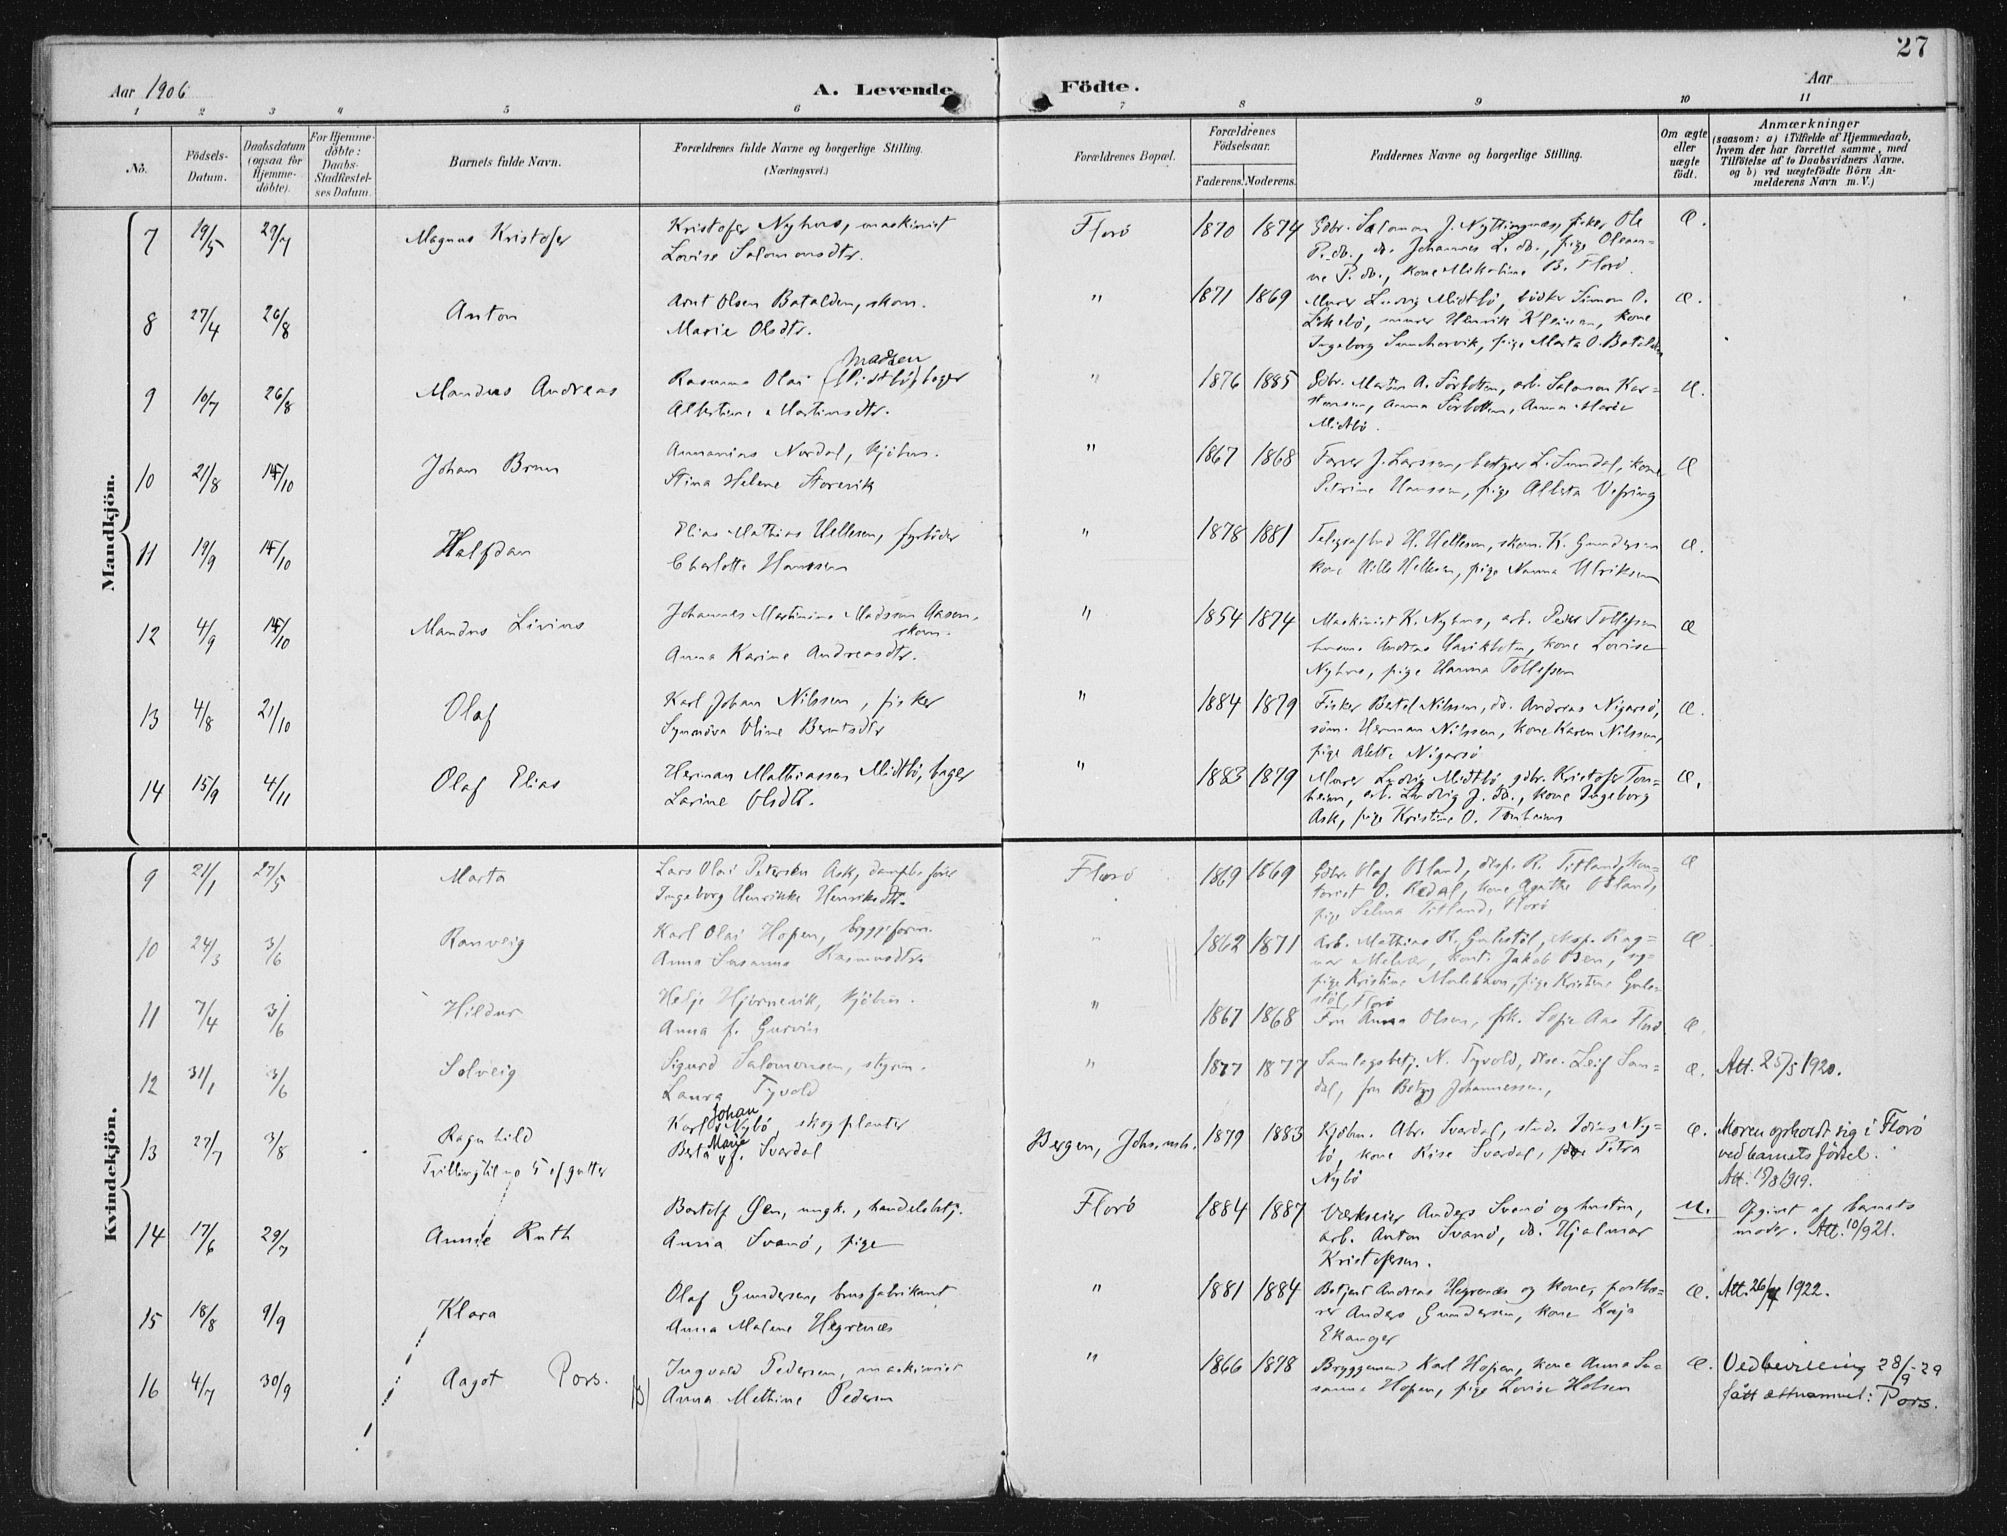 27
Aar 1906
A. Levende
Födte.
Aar
1 2 3 4 5 6 7 8 9 10 11
No.
Födsels-Datum.
Daabsdatum (ogsaa for Hjemme-döbte).
For Hjemme-döbte: Daabs-Stadfæstel-ses Datum.
Barnets fulde Navn.
Forældrenes fulde Navne og borgerlige Stilling.
(Næringsvei.)
Forældrenes Bopæl.
Forældrenes Födselsaar.
Faderens. Moderens.
Faddernes Navne og borgerlige Stilling.
Om ægte eller uægte födt.
Anmærkninger
(saasom: a) i Tilfælde af Hjemmedaab,
hvem der har forrettet samme, med
Tilföielse af to Daabsvidners Navne.
og b) ved uægtefödte Börn An-
melderens Navn m. V.)
Mandkjön.
7 19/5 29/7 Magnus Kristofer
Kristofer Nyhus, maskinist
Lovise Salomonsdtr.
Florö 1870 1874
Gdbr. Salomon J. Nyttingnæs, fisker Ole
P. do., do. Johannes L. do., pige Olean-
ne P. do., kone Mikaline B. Florö.
Æ.
8 27/4 26/8 Anton
Arnt Olsen Batalden, skom.
Marie Olsdtr.
" 1871 1869
Murer Ludvig Midtbö, bödker Simon O.
murer Henrik kone
Ingeborg pige Marta O. Batalden
Æ.
9 10/7 26/8 Mandus Andreas
Rasmus Olai Madsen (Midtbö) bager
Albertine Martinsdtr.
" 1876 1885
Gdbr. Martin A. Sörbotten, arb. Salomon Kar-
stensen, Anna Sörbotten, Anna Marie
Midtbö.
Æ.
10 21/8 14/10 Johan Brun
Ananias Nordal, kjöbm.
Stina Helene Storevik
" 1867 1868
Farver J. Larssen, bestyrer L. Sundal, kone
Petrine Hanssen, pige Alberta Vefring
Æ
11 19/9 14/10 Halfdan
Elias Mathias Hellesen, fyrböder
Charlotte Hanssen
" 1878 1881
Telegrafbud H. Hellesen, skom. K. Gundersen
kone Hellesen, pige Nanna Ulriksen
Æ.
12 4/9 14/10 Mandus Livius
Johannes Martinius Madssen Aasen,
skom.
Anna Karine Andreasdtr.
" 1854 1874
Maskinist K. Nyhus, arb. Peder Tollefsen
Andreas kone Lovise
Nyhus, pige Hanna Tollefsen
Æ
13 4/8 21/10 Olaf
Karl Johan Nilssen, fisker
Synnöva Oline Berntsdtr
" 1884 1879
Fisker Bertel Nilssen, do. Andreas Nigarsö,
söm. Herman Nilssen, kone Karen Nilssen,
pige Nigarsö
Æ.
14 15/9 4/11 Olaf Elias
Herman Mathiassen Midtbö, bager
Larine Olsdtr.
" 1883 1879
Murer Ludvig Midtbö, gdbr. Kristofer Ton-
heim, arb. Ludvig J. do., kone Ingeborg
Ask, pige Kristine O. Tonheim
Æ.
Kvindekjön.
9 21/1 27/5 Marta
Lars Olai Petersen Ask, dampb.förer
Ingeborg Henrikke Henriksdtr.
Florö 1869 1869
Gdbr. Olaf Osland, eksp. R. Titland, kon-
torist O. Redal, kone Agathe Osland,
pige Selma Titland, Florö
Æ
10 24/3 3/6 Ranveig
Karl Olai Hopen, bryggeform.
Anna Susanna Rasmusdtr.
" 1862 1871
Arb. Mathias R. Gulestöl, eksp. Rag-
nar Melvær, kont. Jakob Öen, sy-
pige Kristine pige Kristine Gule-
stöl, Florö
Æ.
11 7/4 3/6 Hildur
Helje Hjörnevik, kjöbm.
Anna f. Gurvin
" 1867 1868
Fru Anna Olsen, frk. Sofie Aas Florö
Æ.
12 31/1 3/6 Solveig
Sigurd Salomonsen, styrm.
Laura Tyvold
" 1877 1877
Samlagsbetj. N. Tyvold, Leif San-
dal, fru Johannessen,
Æ.
Att. 25/5 1920.
13 27/7 3/8 Ragnhild
Tvilling til no 5 af gutter
Karl Johan Nybö, skogplanter
Berta Marie f. Svardal
Bergen, 1879 1883
Kjöbm. Abr. Svardal, stud. Ny-
bö, kone Svardal, pige Petra
Nybö
Æ.
Moren opholdt sig i Florö
ved barnets födsel.
Att. 15/8 1919.
14 17/6 29/7 Annie Ruth
Bertolf Öen, ungk., handelsbetj.
Anna Svanö, pige
Florö 1884 1887
Værkseier Anders Svanö og hustru,
arb. Anton Svanö, do. Hjalmar
Kristofersen.
U.
Opgivet af barnets
moder. Att. 10/9 21.
15 18/8 9/9 Klara
Olaf Gundersen, brusfabrikant
Anna Malene Hegrenæs
" 1881 1884
Betjent Andreas Hegrenæs og kone, postbæ-
rer Anders Gundersen, kone Kaja
Ekanger
Æ.
Att. 26/4 1922.
16 4/7 30/9 Aagot Pors.
Ingvald Pedersen, maskinist
Anna Methine Pedersen
" 1866 1878
Bryggemand Karl Hopen, kone Anna Su-
sanna Hopen, pige Lovise Helsen
Æ.
Ved bevilling 28/9-29
fått ættnamnet: Pors.